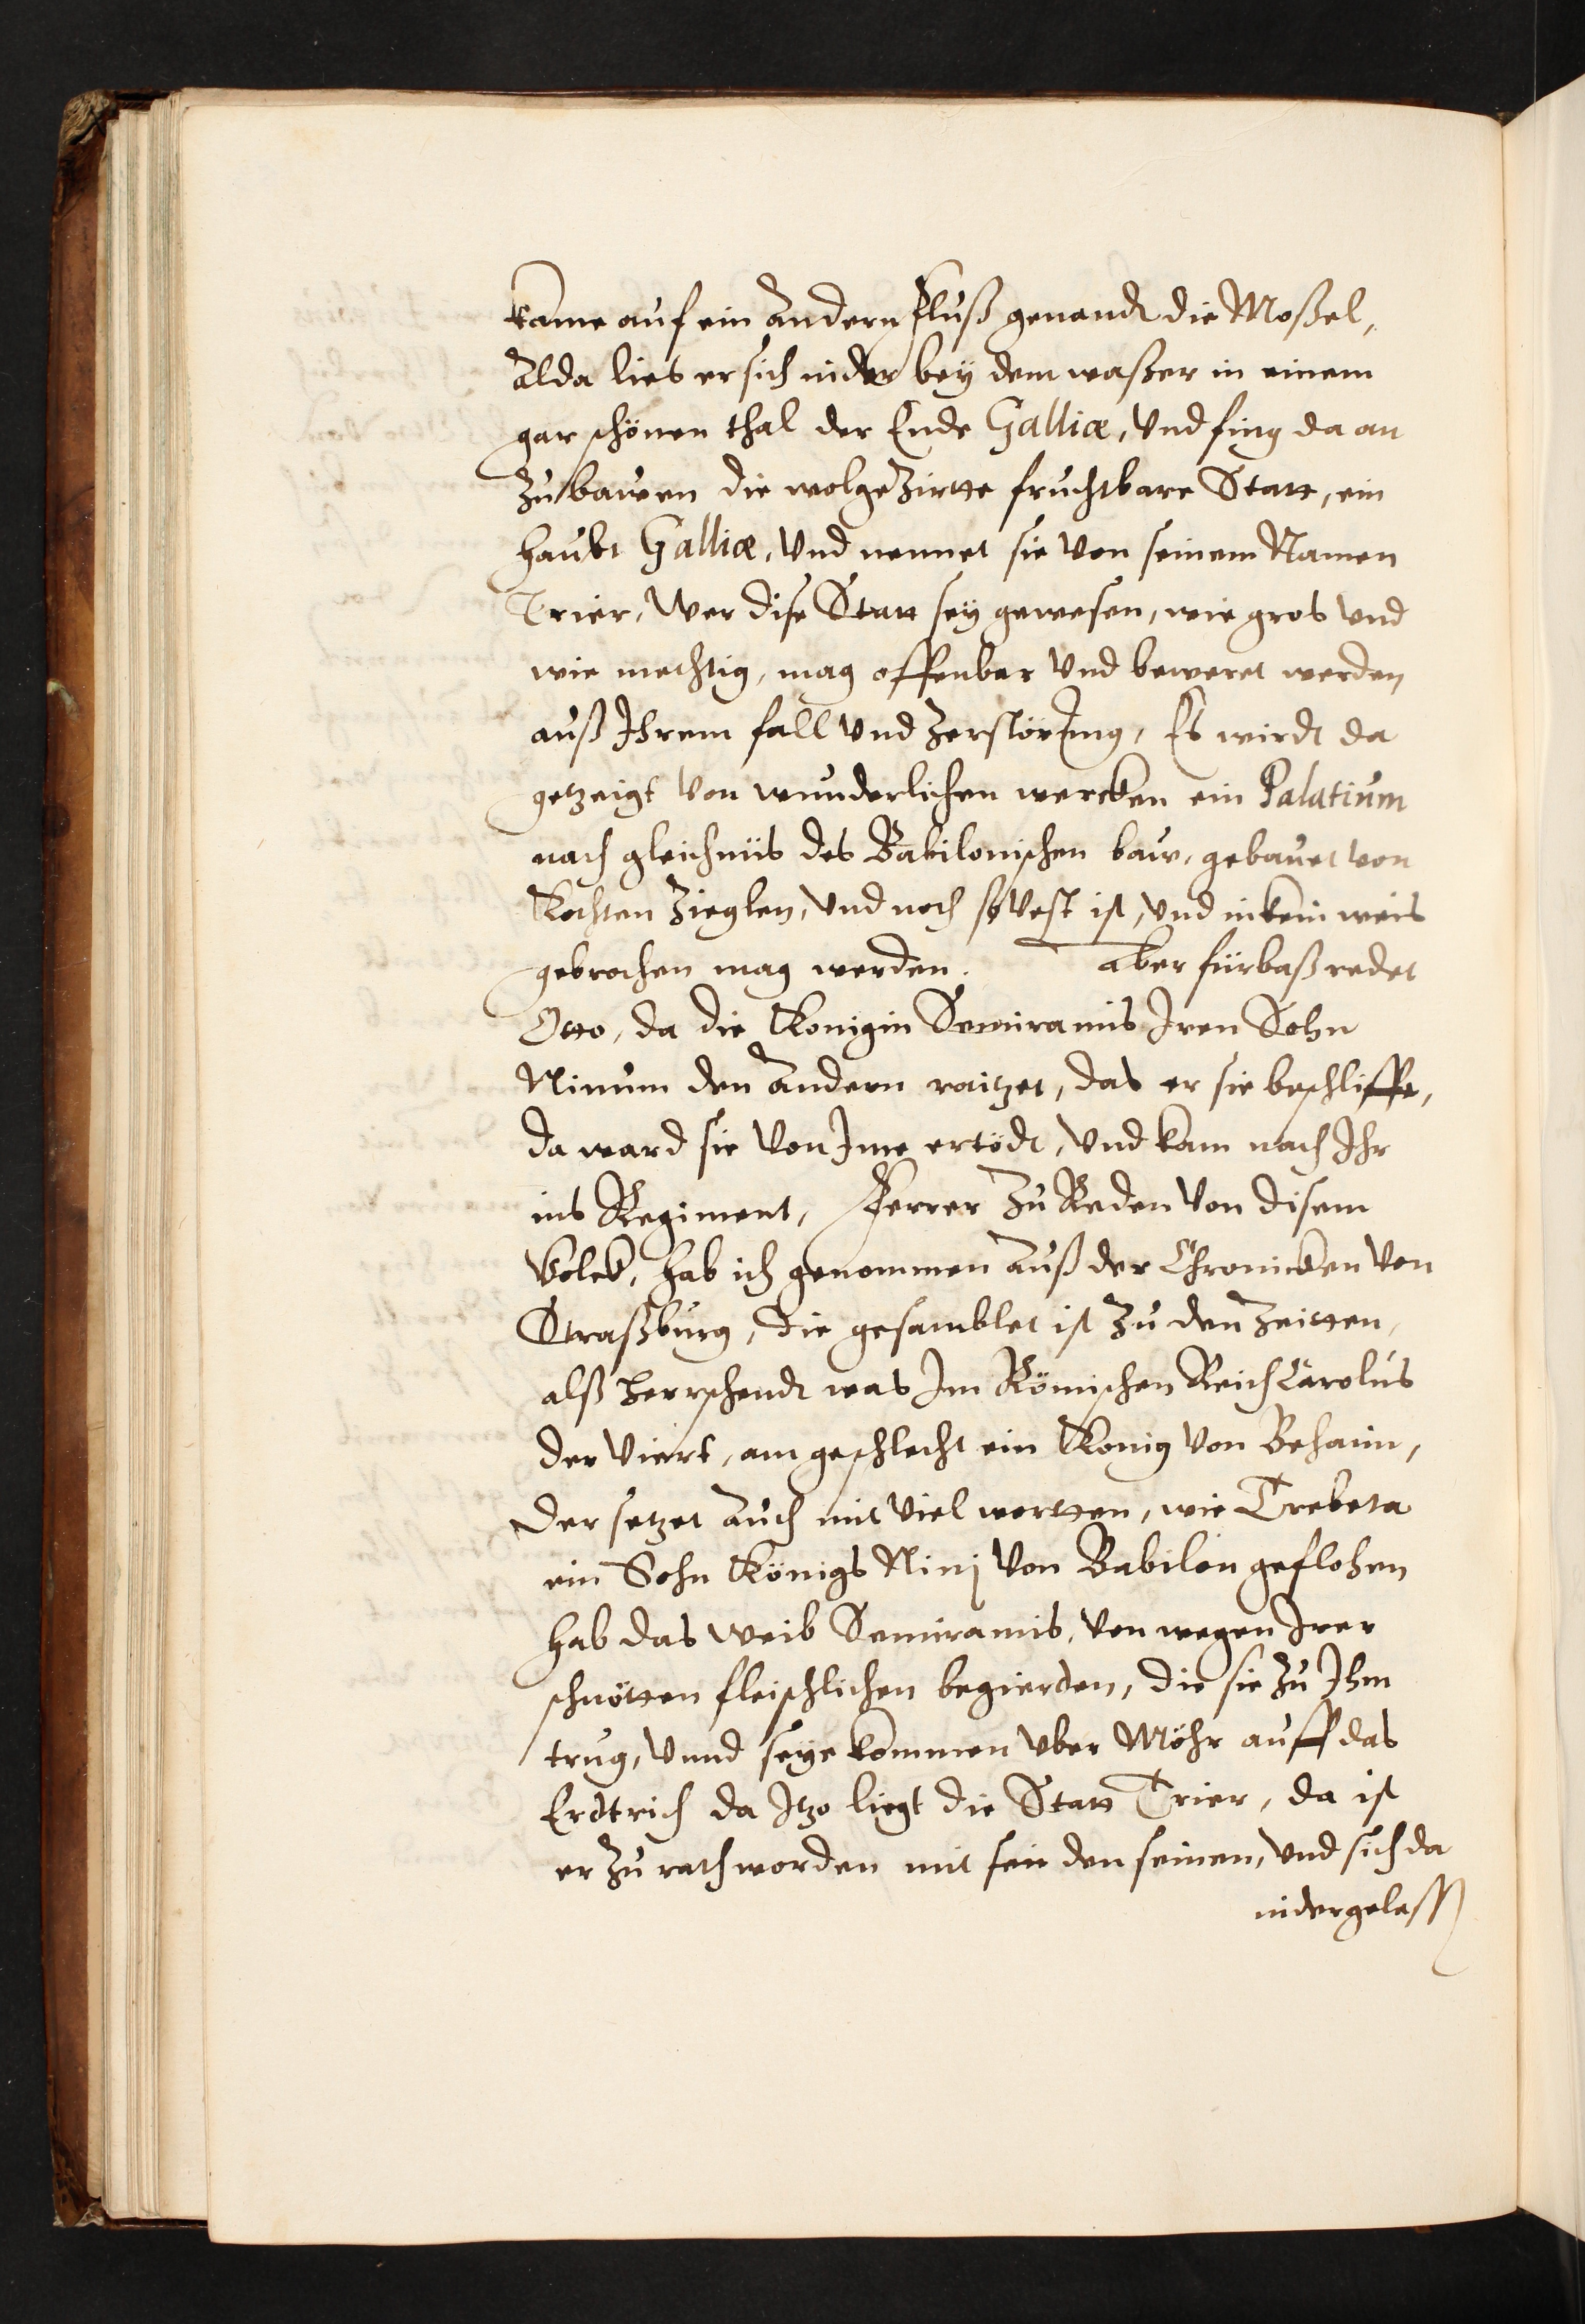 kame auf ein Andern Fluß genandt die Moßel,
Alda lies er sich nider bey dem waßer in einem
gar schönen thal der Ende Galliæ, Vnd fing da an
Zu bawen die wolgeZirtte fruchtbare Statt, ein
haubt Galliæ, Vnd nennet sie Von seinem Namen
Trier, Wer dise Statt sey gewesen, wie gros Vnd
wie mechtig, mag offenbar Vnd beweret werden
auß Ihrem fall Vnd Zerstörung, Es wirdt da
getzeigt Von wunderlichen wercken ein Palatium
nach gleichnüs des Babilonischen baw, gebauet von
Kochten Zieglen, Vnd noch so Vest ist, Vnd in kein weis
gebrochen mag werden. Aber fürbaß redet
Otto, da die Konigin Semiramis Iren Sohn
Ninum den Andern raitzet, das er sie beschliffe,
da ward sie Von Ime ertödt, Vnd kam nach Ihr
ins Regiment, Ferrer Zu Reden Von disem
Volck, hab ich genommen Auß der Chronicken Von
Straßburg, die gesamblet ist Zu den Zeitten,
alß herrschendt was Im Römischen Reich Carolus
der Viert, am geschlecht ein Konig Von Behaim,
der setzet Auch mit Viel wortten, wie Trebeta
ein Sohn Königs Ninj Von Babilon geflohen
hab das Weib Semiramis, Von wegen Irer
schnötten fleischlichen begierden, die sie Zu Ihm
trug, Vnnd seye kommen Vber Möhr auff das
Erdtrich da Itzo liegt die Statt Trier, da ist
er Zu rath worden mit sein den seinen, Vnd sich da
nidergelassen